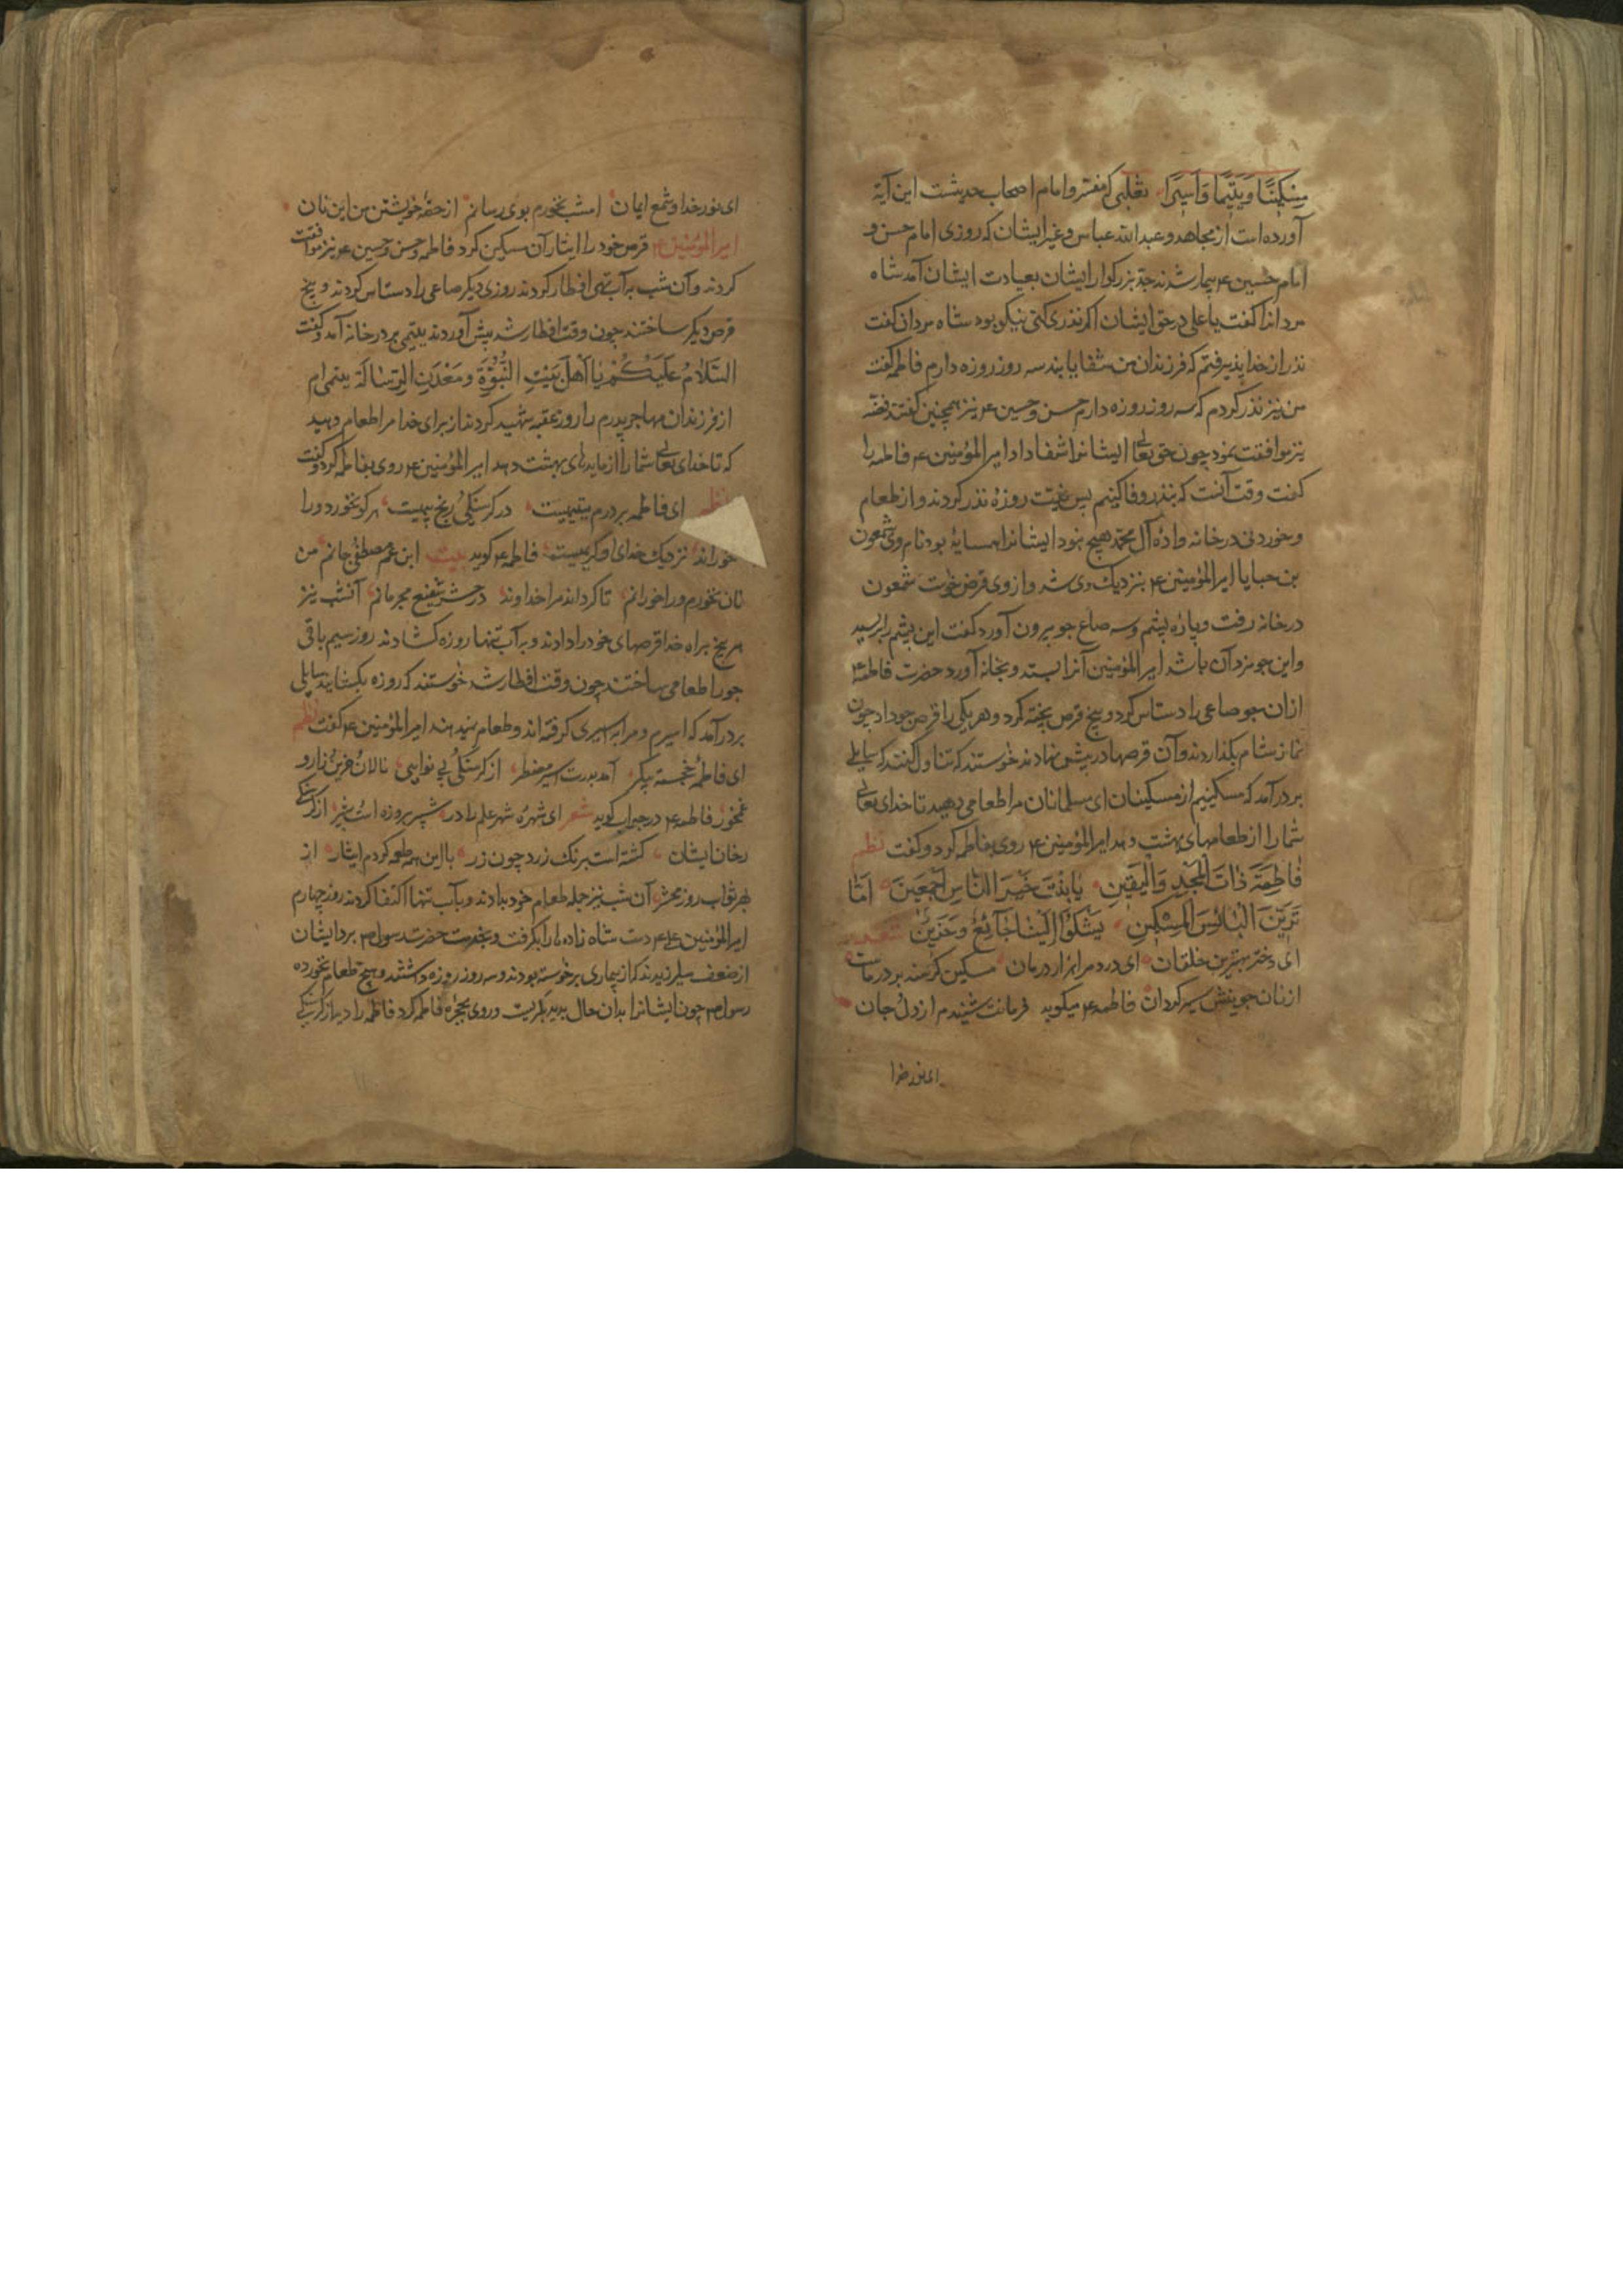 مِسْكِينًا وَيَتِيمًا وَأَسِيرًا ثعلبی که مفسر و امام اصحاب حدیثست این آیة
آورده است از مجاهد و عبدالله عباس و غیر ایشان که روزی امام حسن و
امام حسین ۴ بیمار شدند جد بزرکوار ایشان بعیادت ایشان آمد شاه
مردانرا کفت یا علی در حق ایشان اکر نذری کنی نیکو بود شاه مردان کفت
نذر از خدا پذیرفتم که فرزندان من شفا یابند سه روز روزه دارم فاطمه کفت
من نیز نذر کردم که سه روز روزه دارم حسن و حسین ۴ نیز همچنین کفتند فضه
نیز موافقت نمود چون حق تعالی ایشانرا شفا داد امیرالمؤمنین ۴ فاطمه را
کفت وقت آنست که بنذر وفا کنیم پس نیت روزه نذر کردند و از طعام
و خوردنی در خانه واده آل محمد هیچ نبود ایشانرا همسایهٔ بود نام وی شمعون
بن حبایا امیرالمؤمنین ۴ بنزدیک وی شد و از وی قرض خواست شمعون
در خانه رفت و پاره پشم و سه صاع جو بیرون آورد کفت این پشم را بریسید
و این جو مزد آن باشد امیرالمؤمنین آنرا بستد و بخانه آورد حضرت فاطمه ۴
ازان جو صاعی را دستاس کرد و پنج قرص پخته کرد و هر یکی را قرص جو داد چون
نماز شام بکذاردند وآن قرصها در پیش نهادند خواستند که تناول کنند که سایلی
بر در آمد که مسکینیم از مسکینان ای مسلمانان مرا طعامی دهید تا خدای تعالی
شما را از طعامهای بهشت دهد امیرالمؤمنین ۴ روی بفاطمه کرد و کفت نظم
فَاطِمَةَ ذَاتَ الْمَجْدِ وَالْيَقِينِ يَابِنْتَ خَيْرِ النَّاسِ أَجْمَعِينَ أَمَا
تَرَيْنَ الْبَائِسَ الْمِسْكِينَ يَشْكُو إِلَيْنَا جَائِعٌ وَحَزِينٌ شعر
ای دختر بهترین خلقان ای درد مرا هزار درمان مسکین کرسنه بر درماست
از نان جوینش سیر کردان فاطمه ۴ میکوید فرمانت شنیدم از دل و جان
ای نور خدا
ای نور خدا و شمع ایمان امشب نخورم بوی رسانم از حصه خویشتن من این نان
امیرالمؤمنین ۴ قرص خود را ایثار آن مسکین کرد فاطمه و حسن و حسین ۴ نیز موافقت
کردند و آن شب بر آب تهی افطار کردند روزی دیکر صاعی را دستاس کردند و پنج
قرص دیکر ساختند چون وقت افطار شد پیش آوردند یتیمی بر در خانه آمد و کفت
السَّلَامُ عَلَيْكُمْ يَا أَهْلَ بَيْتِ النُّبُوَّةِ وَمَعْدَنِ الرِّسَالَةِ یتیمی ام
از فرزندان مهاجر پدرم را روز عقبه شهید کردند از برای خدا مرا طعام دهید
که تا خدای تعالی شما را از مایدهای بهشت دهد امیرالمؤمنین ۴ روی بفاطمه کرد و کفت
نظم ای فاطمه بر درم یتیمیست در کرسنکی رنج بیمیست هرکو بخورد ورا
خوراند نزدیک خدای او کریمیست فاطمه ۴ کوید بیت ابن عم مصطفی جانم من
نان نخورم ورا خورانم تا کرداند مرا خداوند در حشر شفیع مجرمانم آنشب نیز
هر پنج براه خدا قرصهای خود را دادند و بر آب تنها روزه کشادند روز سیم باقی
جو را طعامی ساختند چون وقت افطار شد خواستند که روزه بکشایند سایلی
بر در آمد که اسیرم و مرا به اسیری کرفته اند و طعام نمیدهند امیرالمؤمنین ۴ کفت نظم
ای فاطمهٔ خجسته پیکر آمد بدرت اسیر مضطر از کرسنکی و بی نوایی نالان و حزین و زار و
غمخور فاطمه ۴ در جواب کوید شعر ای شهرهٔ شهر علم را در شپیر بروزه است و شبر از کرسنکی
رخان ایشان کشته است برنک زرد چون زر با این همه طعمه کردم ایثار از
بهر ثواب روز محشر آن شب نیز جمله طعام خود بدادند و بآب تنها اکتفا کردند روز چهارم
امیرالمؤمنین علی ۴ دست شاه زاده ها را بکرفت و بخدمت حضرت رسول ص برد ایشان
از ضعف میلرزیدند که از بیماری برخواسته بودند و سه روز روزه داشتند و هیچ طعام نخورده
رسول ص چون ایشانرا بدان حال بدید بکریست و روی بحجره فاطمه کرد فاطمه را دید از کرسنکی